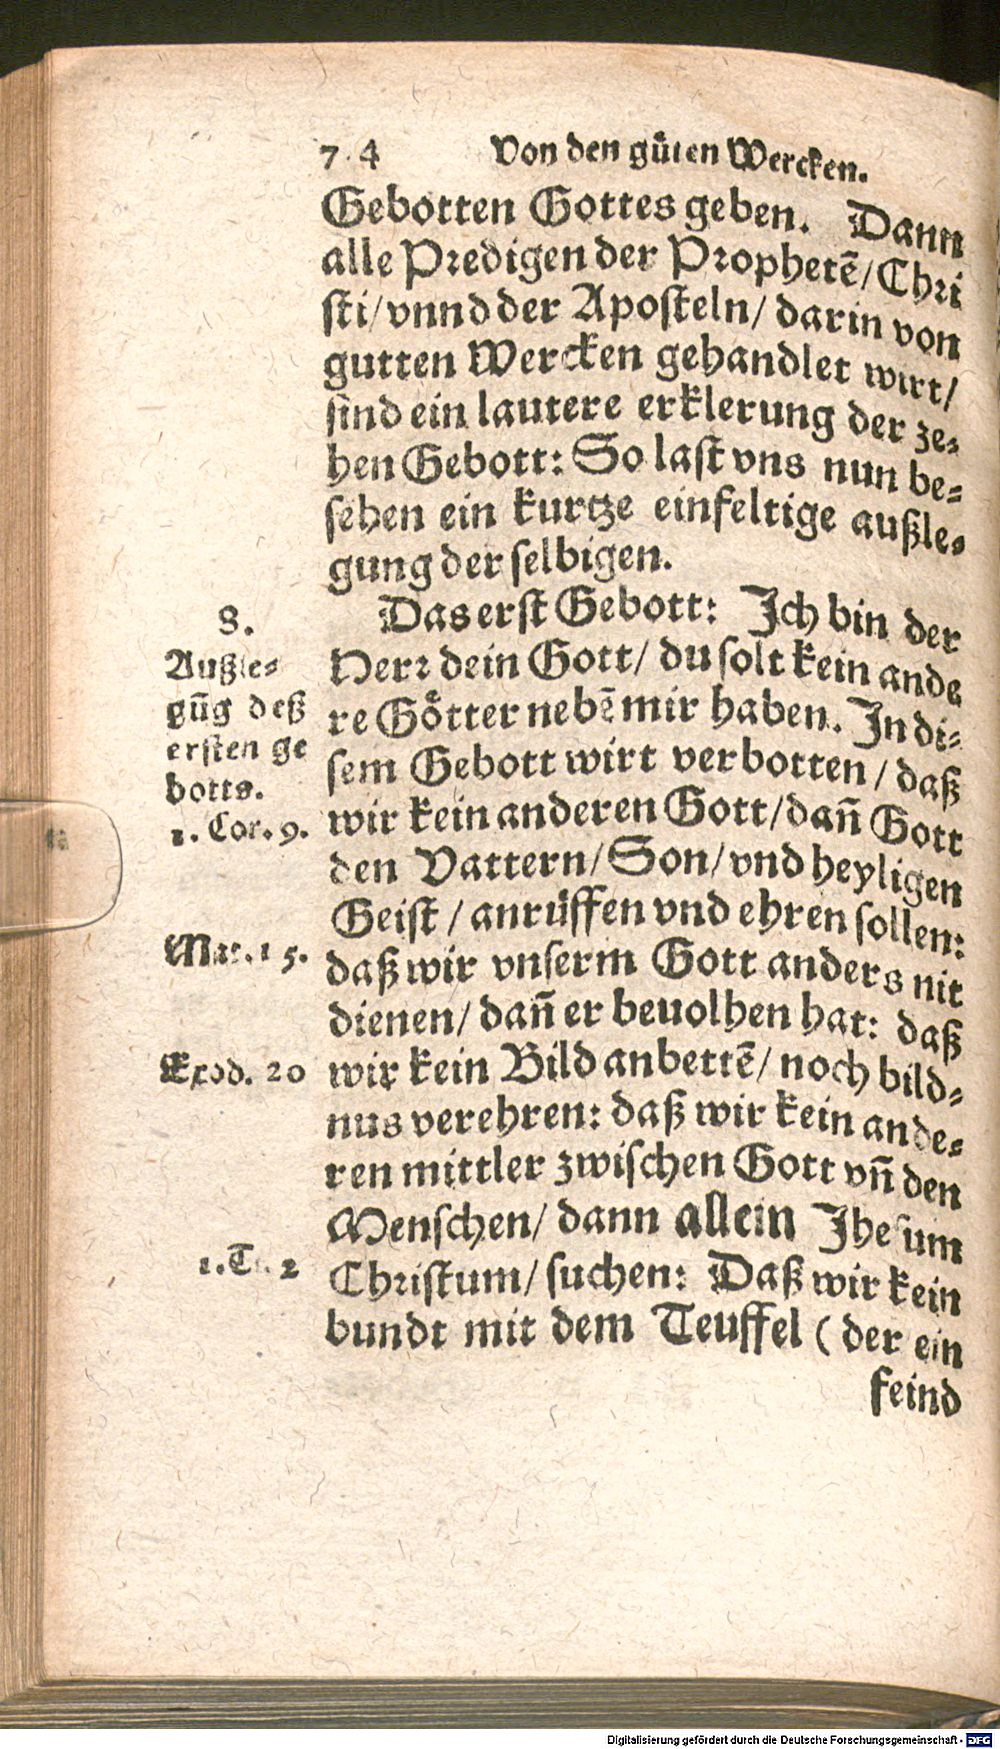 7 4 Von den gůten Wercken.
Gebotten Gottes geben. Dann
alle Predigen der Prophetē/ Chri
sti/ vnnd der Aposteln/ darin von
gutten Wercken gehandlet wirt/
sind ein lautere erklerung der ze-
hen Gebott: So last vns nun be-
sehen ein kurtze einfeltige außle-
gung der selbigen.
Das erst Gebott: Ich bin der
Herr dein Gott/ du solt kein ande
re Götter nebē mir haben. In di-
sem Gebott wirt verbotten/ daß
wir kein anderen Gott/ dañ Gott
den Vattern/ Son/ vnd heyligen
Geist/ anrüffen vnd ehren sollen:
daß wir vnserm Gott anders nit
dienen/ dañ er beuolhen hat: daß
wir kein Bild anbettē/ noch bild-
nus verehren: daß wir kein ande-
ren mittler zwischen Gott vñ den
Menschen/ dann allein Jhesum
Christum/ suchen: Daß wir kein
bundt mit dem Teuffel ( der ein
feind
8.
Außle-
gūg deß
ersten ge
botts.
1. Cor. 9.
Mat. 15.
Exod. 20
1. T 2
Digitalisierung gefördert durch die Deutsche Forschungsgemeinschaft - DFG